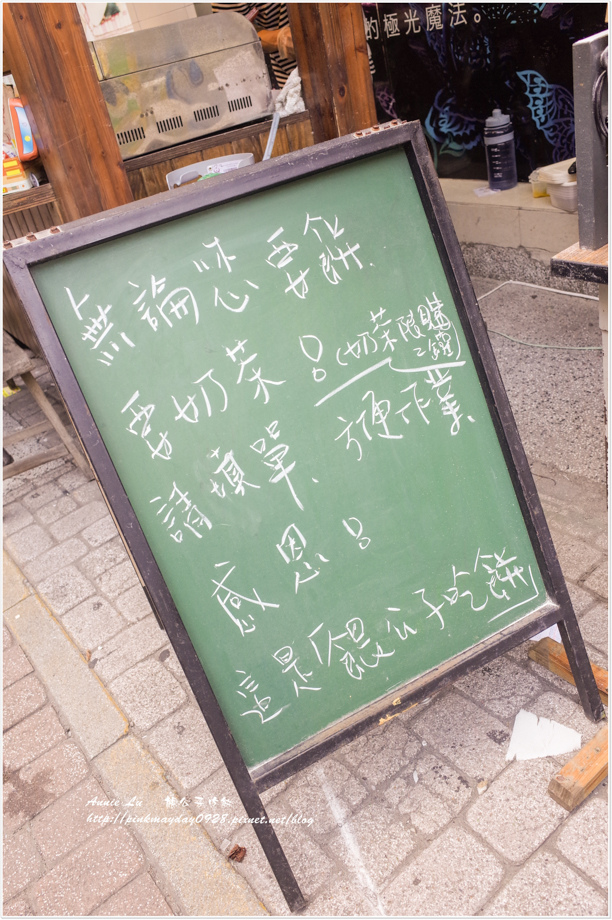 的極光魔法。
無論您要餅、
要奶茶。(奶茶限購
2鍋)
請填單、方便作業
感恩。
這是餵公子吃餅
Annie Lu
http://pinkmayday0928.pixnet.net/blog